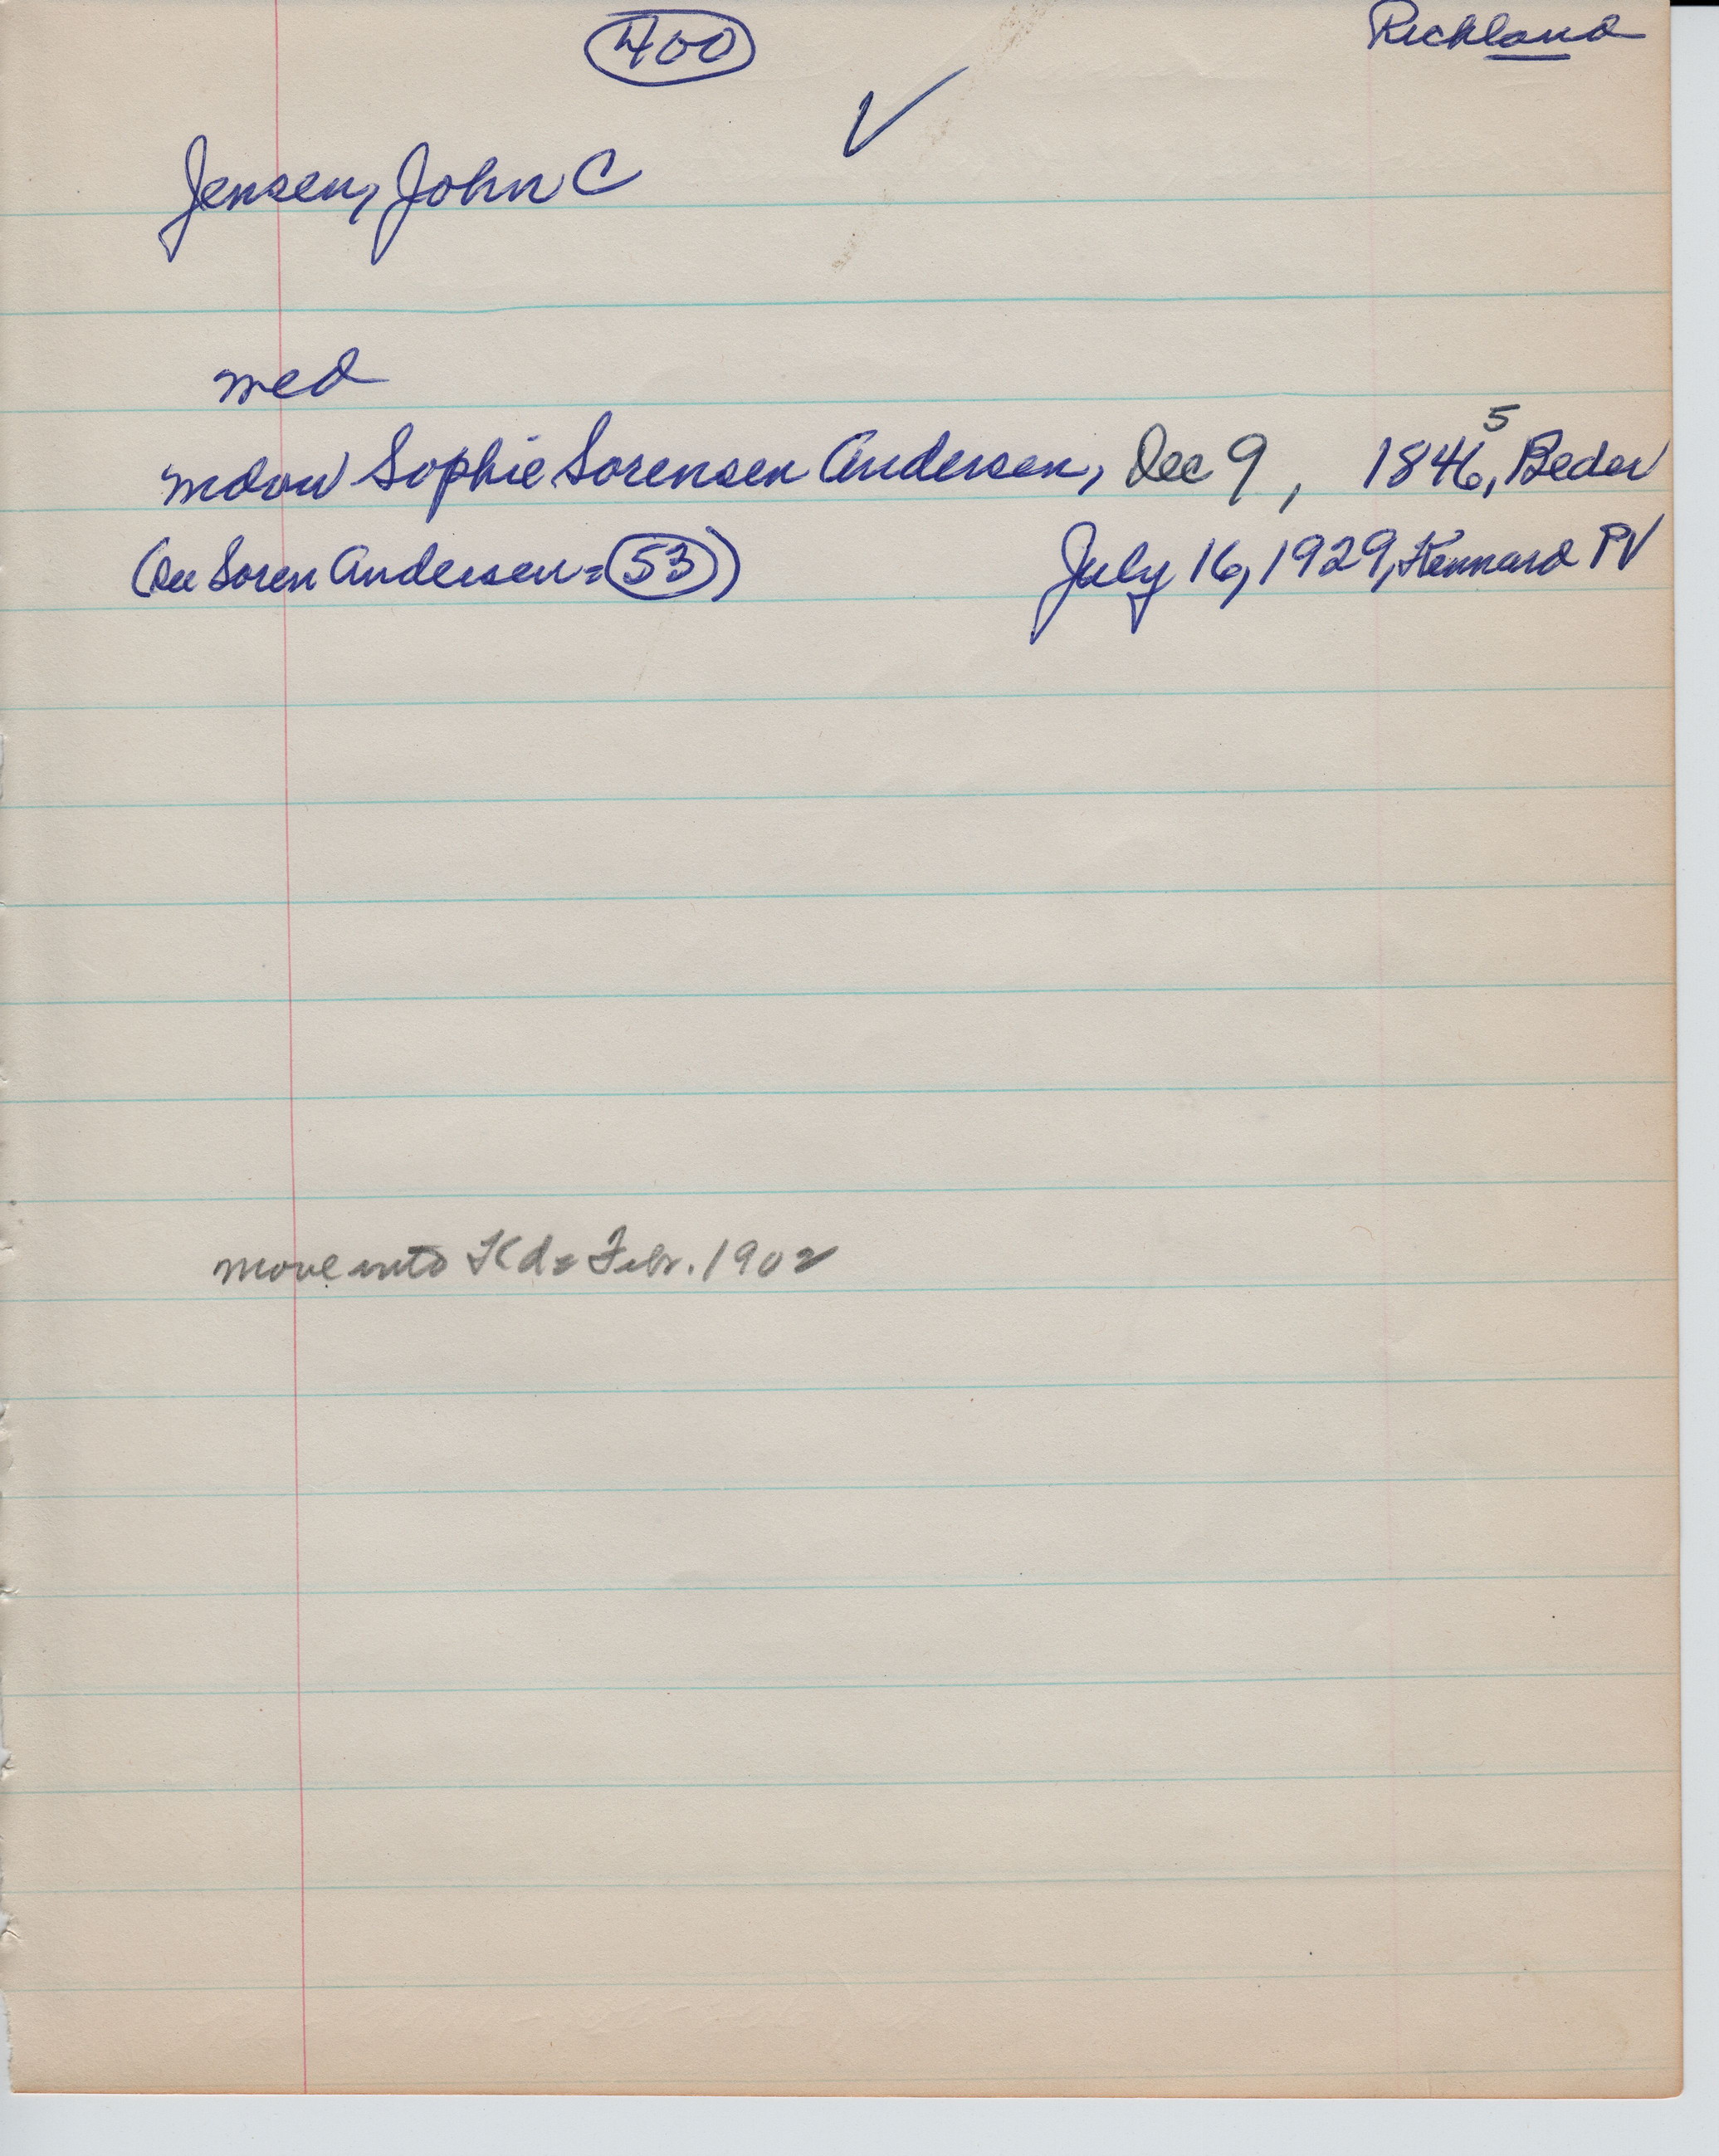 400
Richland
✓
Jensen, John C
med
Sophie Sorensen Andersen, Dec 9, 1846, 5
(See Soren Andersen = 53)
July 16, 1929, Kennard PV
move into Kd = Febr. 1902